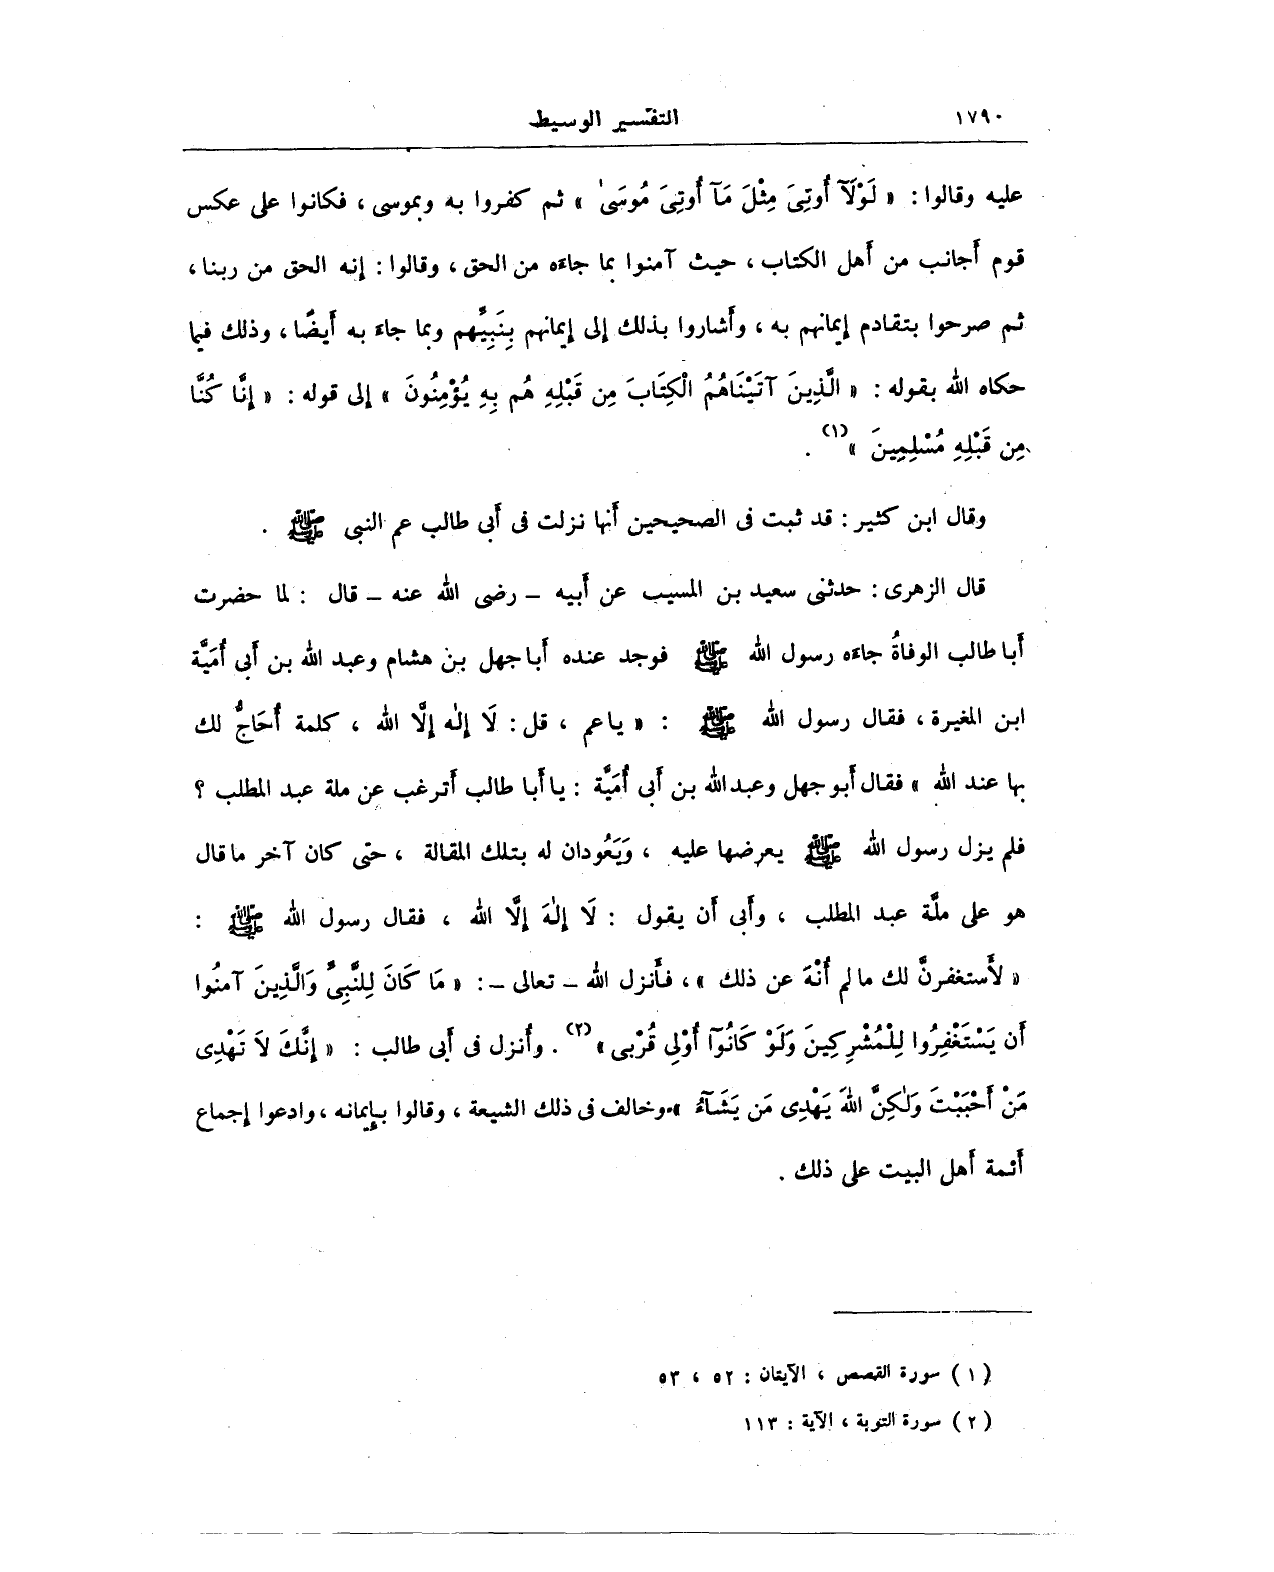 ١٧٩٠ التفسير الوسيط
عليه وقالوا : « لَوْلَآ أُوتِىَ مِثْلَ مَآ أُوتِىَ مُوسَىٰ » ثم كفروا به وبموسى ، فكانوا على عكس
قوم أجانب من أهل الكتاب ، حيث آمنوا بما جاءه من الحق ، وقالوا : إنه الحق من ربنا ،
ثم صرحوا بتقادم إيمانهم به ، وأشاروا بذلك إلى إيمانهم بِنَبِيِّهم وبما جاء به أيضًا ، وذلك فيما
حكاه الله بقوله : « الَّذِينَ آتَيْنَاهُمُ الْكِتَابَ مِن قَبْلِهِ هُم بِهِ يُؤْمِنُونَ » إلى قوله : « إِنَّا كُنَّا
مِن قَبْلِهِ مُسْلِمِينَ » (١) .
وقال ابن كثير : قد ثبت فى الصحيحين أنها نزلت فى أبى طالب عم النبى ﷺ .
قال الزهرى : حدثنى سعيد بن المسيب عن أبيه – رضى الله عنه – قال : لما حضرت
أبا طالب الوفاةُ جاءه رسول الله ﷺ فوجد عنده أبا جهل بن هشام وعبد الله بن أبى أُمَيَّة
ابن المغيرة ، فقال رسول الله ﷺ : « يا عم ، قل : لَا إِلٰه إِلَّا الله ، كلمة أُحَاجُّ لك
بها عند الله » فقال أبو جهل وعبد الله بن أبى أُمَيَّة : يا أبا طالب أترغب عن ملة عبد المطلب ؟
فلم يزل رسول الله ﷺ يعرضها عليه ، وَيَعُودان له بتلك المقالة ، حتى كان آخر ما قال
هو على ملَّة عبد المطلب ، وأبى أن يقول : لَا إِلٰهَ إِلَّا الله ، فقال رسول الله ﷺ :
« لأَستغفرنَّ لك ما لم أُنْهَ عن ذلك » ، فأنزل الله – تعالى – : « مَا كَانَ لِلنَّبِىِّ وَالَّذِينَ آمنُوا
أَن يَسْتَغْفِرُوا لِلْمُشْرِكِينَ وَلَوْ كَانُوٓا أُوْلِى قُرْبى » (٢) . وأنزل فى أبى طالب : « إِنَّكَ لاَ تَهْدِى
مَنْ أَحْبَبْتَ وَلٰكِنَّ اللهَ يَهْدِى مَن يَشَآءُ » وخالف فى ذلك الشيعة ، وقالوا بإيمانه ، وادعوا إجماع
أئمة أهل البيت على ذلك .
( ١ ) سورة القصص ، الآيتان : ٥٢ ، ٥٣
( ٢ ) سورة التوبة ، الآية : ١١٣